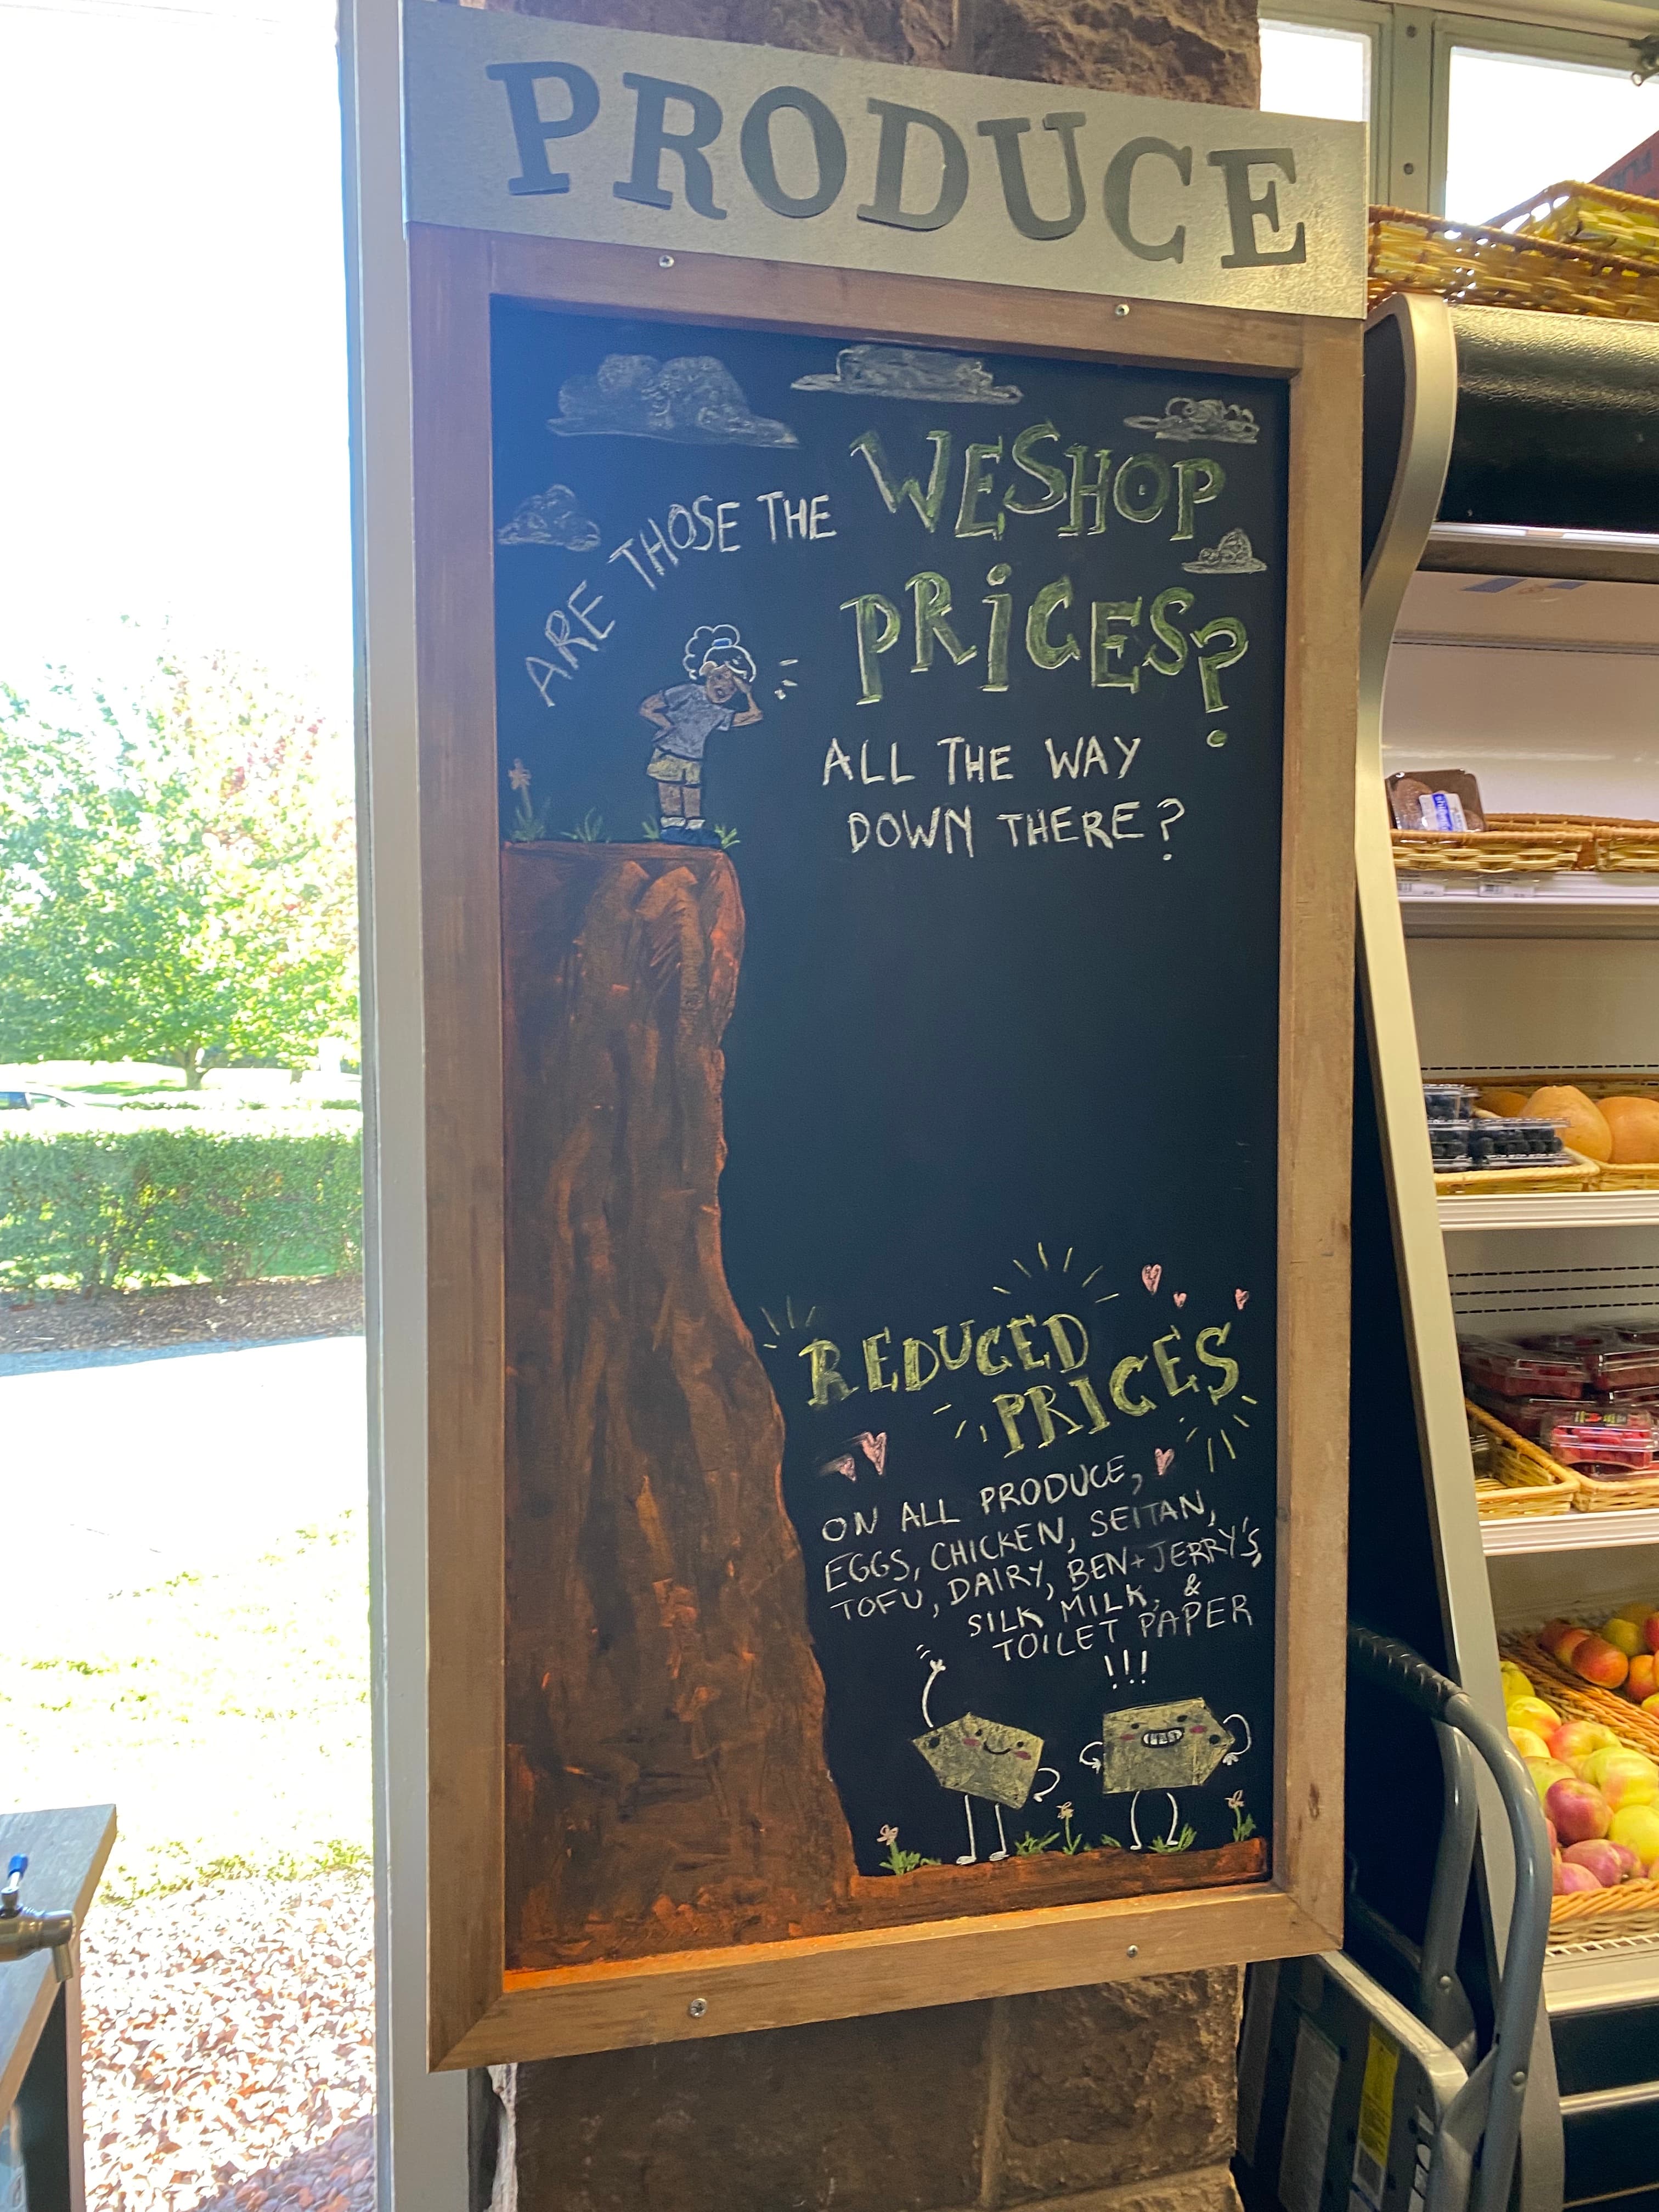 PRODUCE
ARE THOSE THE WESHOP
PRICES?
ALL THE WAY
DOWN THERE?
REDUCED
PRICES
ON ALL PRODUCE,
EGGS, CHICKEN, SEITAN,
TOFU, DAIRY, BEN+JERRY'S,
SILK MILK, &
TOILET PAPER
!!!